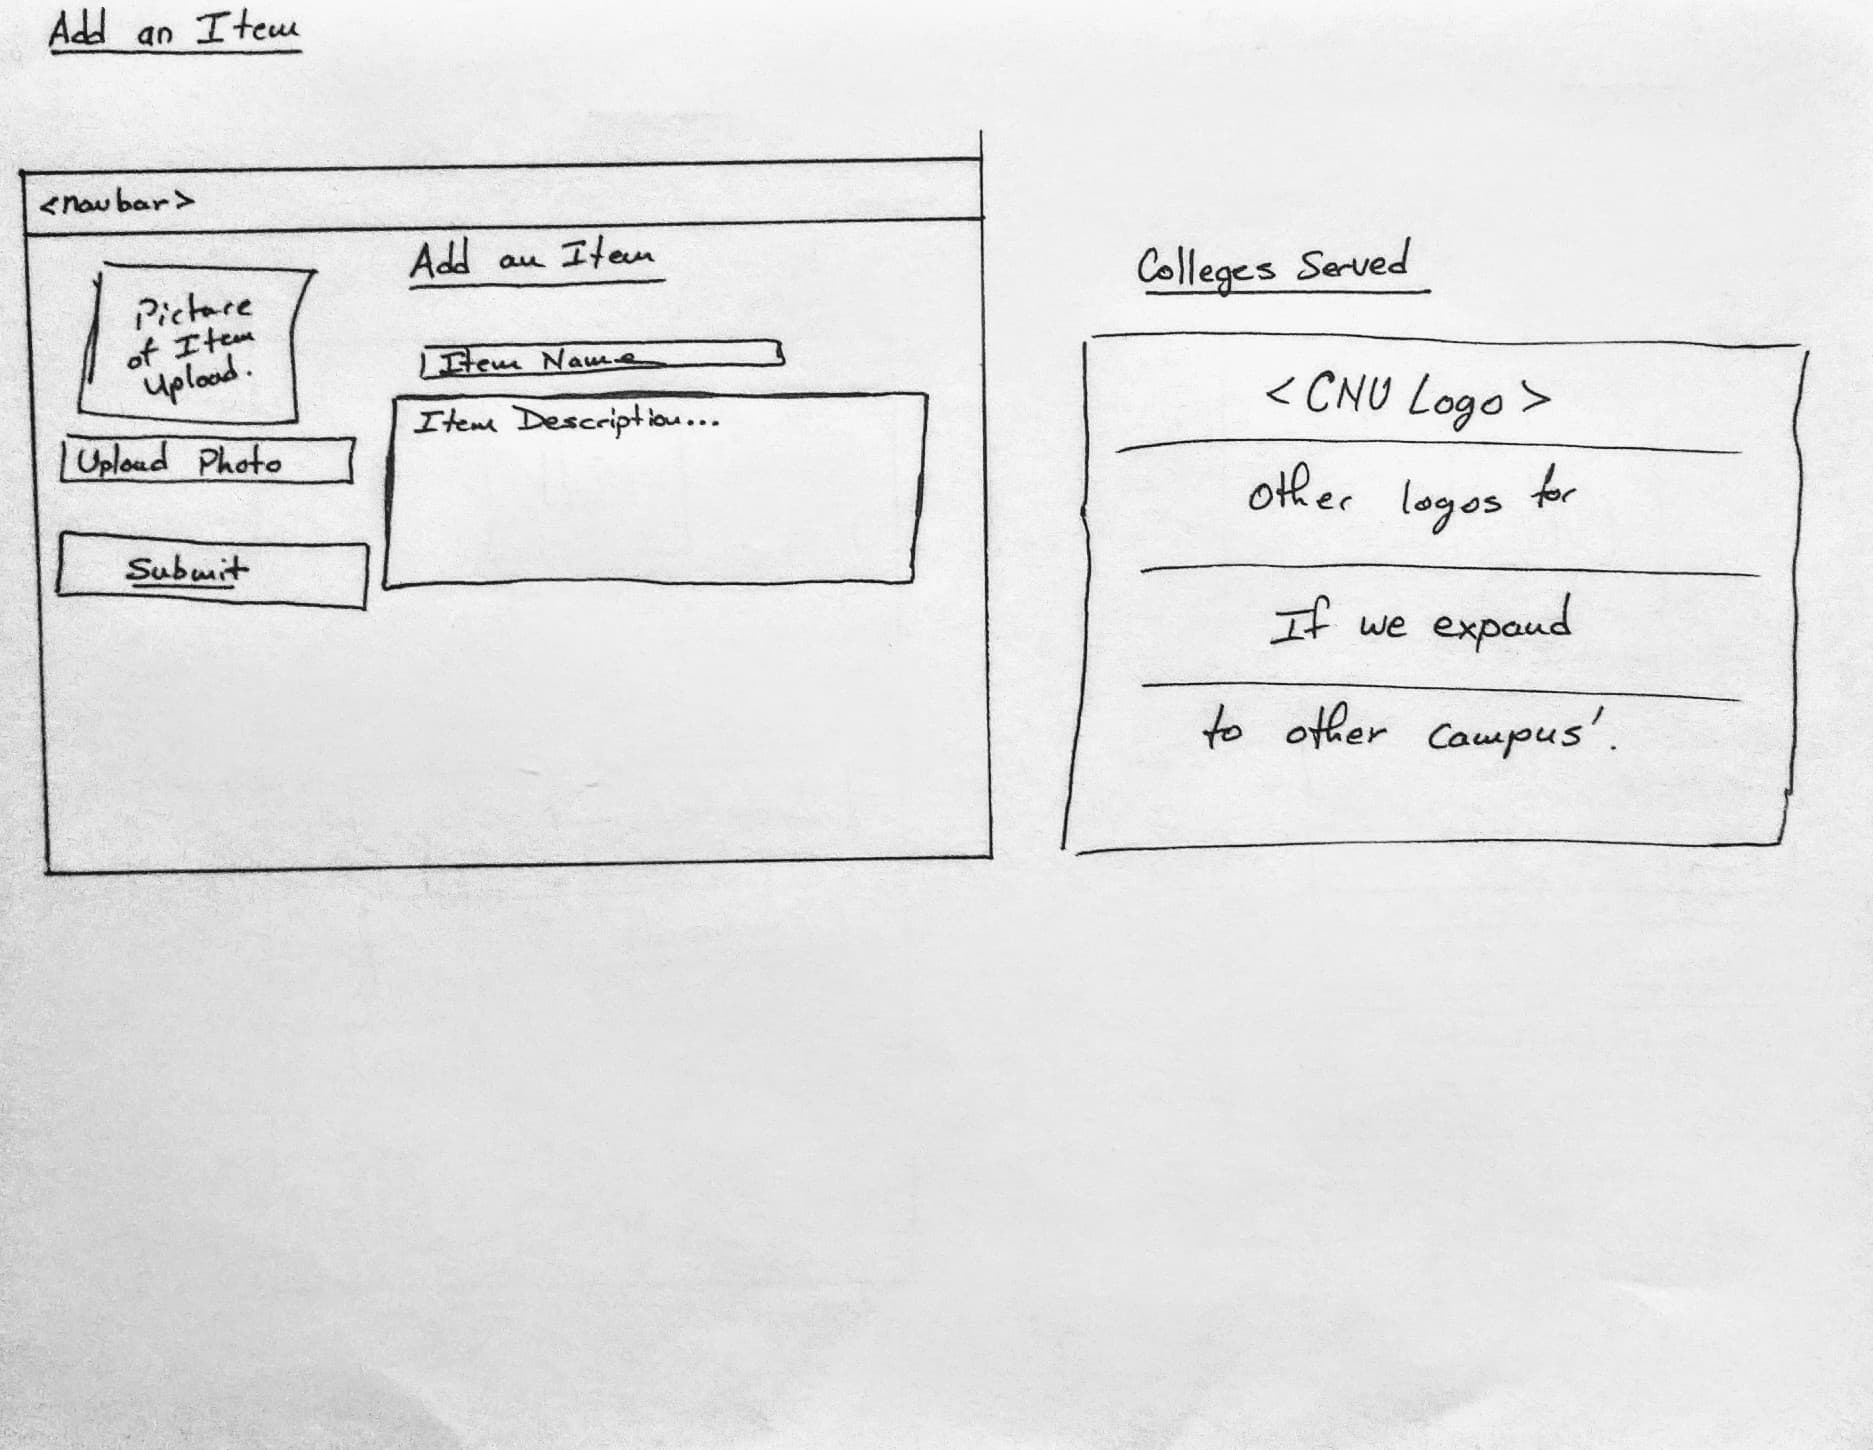 Add an Item
<navbar>
Add an Item
Picture
of Item
Upload.
Upload Photo
Submit
Item Name
Item Description...
Colleges Served
<CNU Logo>
other logos for
If we expand
to other campus'.